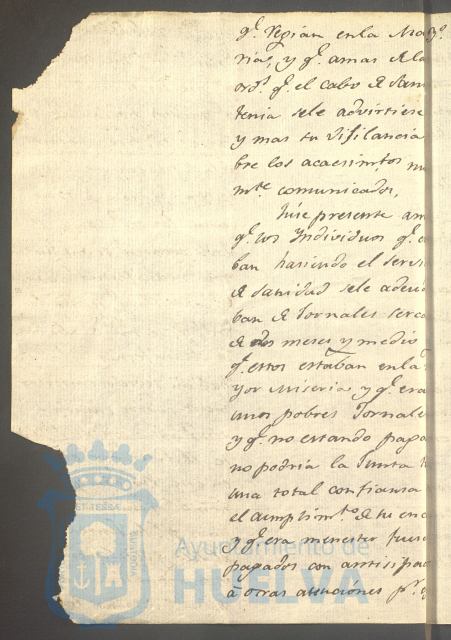 qe. regian en la Mayr.
rias, y qe. amas de la
ords. qe. el cabo de San
tenia se le advirtiese
y mas su vijilancia
bre los acaesimtos. nu
mte. comunicados,
hise presente am
qe. los Yndividuos qe. e
ban hasiendo el servi
de sanidad se le adeu
ban de Jornales serca
de dos meses y medio
qe. estos estaban en la
yor Miseria, y qe. era
unos pobres Jornale
y qe. no estando paga
no podria la Junta
una total confiansa
el cumplimto. de su enc
y qe. era menester fuese
pagados con antisipa
a otras atenciones pr.
Ayuntamiento de
HUELVA